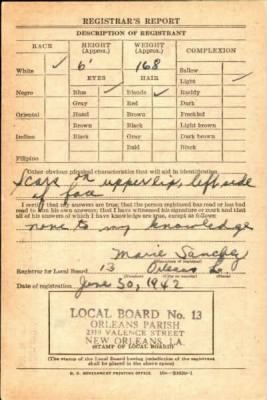 REGISTRAR'S REPORT
DESCRIPTION OF REGISTRANT
RACE HEIGHT (Approx.) WEIGHT (Approx.) COMPLEXION
6' 168
White ✓ Sallow
EYES HAIR Light ✓
Negro Blue ✓ Blonde ✓ Ruddy
Gray Red Dark
Oriental Hazel Brown Freckled
Brown Black Light brown
Indian Black Gray Dark brown
Bald Black
Filipino
Other obvious physical characteristics that will aid in identification
Scars on upper lip, left side
of face
I certify that my answers are true; that the person registered has read or has had
read to him his own answers; that I have witnessed his signature or mark and that
all of his answers of which I have knowledge are true, except as follows:
none to my knowledge
Marie Sanchez
(Signature of registrar)
Registrar for Local Board 13 Orleans La.
(Number) (City or county) (State)
Date of registration June 30, 1942
LOCAL BOARD No. 13
ORLEANS PARISH
2119 VALENCE STREET
NEW ORLEANS, LA.
(STAMP OF LOCAL BOARD)
(The stamp of the Local Board having jurisdiction of the registrant
shall be placed in the above space)
U. S. GOVERNMENT PRINTING OFFICE